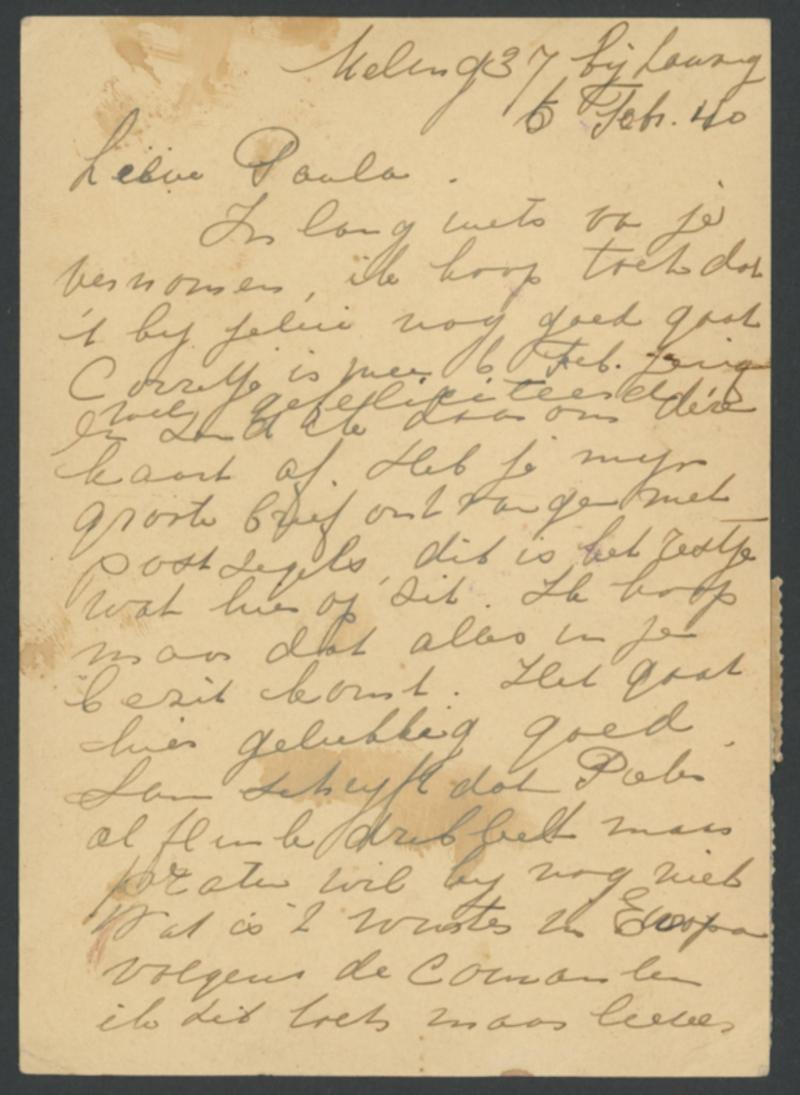 37 bij Lawang
6 Feb. 40
Lieve Paula.
In lang niets van je
vernomen, ik hoop toch dat
't bij jullie nog goed gaat
Corretje is weer 6 Feb. jarig
wel gefeliciteerd
en zend ik daarom deze
kaart af. Heb je mijn
groote brief ontvangen met
postzegels, dit is het restje
wat hier op zit. Ik hoop
maar dat alles in je
bezit komt. Het gaat
hier gelukkig goed.
schrijft dat
al flink dribbelt maar
praten wil hij nog niet
Wat is 't winter in Europa
volgens de couranten
ik zit toch maar liever